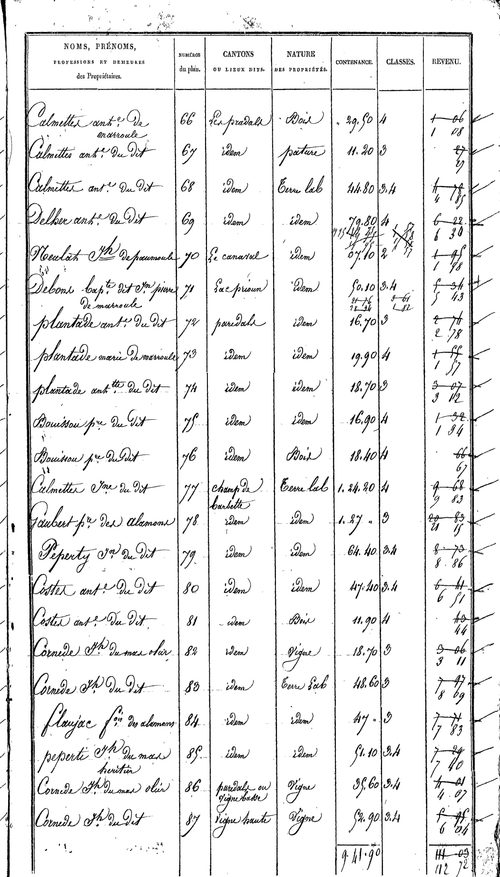 NOMS, PRÉNOMS, PROFESSIONS ET DEMEURES des Propriétaires. NUMÉROS du plan. CANTONS OU LIEUX DITS. NATURE DES PROPRIÉTÉS. CONTENANCE. CLASSES. REVENU.
Calmettes ant.e de marroule 66 Les pradals Bois . 29.50 4 1 06 1 08
Calmettes ant.e du dit 67 idem pature 11.20 3 27 27
Calmettes ant.e du dit 68 idem Terre lab 44.80 3.4 4 78 4 85
Delher ant.e du dit 69 idem idem 79.80 4 6 22 6 30
Jh de paumoule 70 Le canaval idem 07.10 2 1 95 1 98
Debons bap.te dit Jn pierre de marroule 71 Lac prioun idem 50.10 3.4 5 34 5 43
plantade ant.e du dit 72 paredals idem 16.70 3 2 74 2 78
plantade marie de marroule 73 idem idem 19.90 4 1 55 1 57
plantade ant.e du dit 74 idem idem 18.70 3 3 07 3 12
Bouisson p.re du dit 75 idem idem 16.90 4 1 32 1 34
Bouisson p.re du dit 76 idem Bois 18.40 4 66 67
Calmettes du dit 77 champ de barbette Terre lab 1.24.20 4 9 68 9 83
Gaubert p.re des alamans 78 idem idem 1.27 . 3 20 83 15
Peperty du dit 79 idem idem 64.40 3.4 8 73 8 86
Costes ant.e du dit 80 idem idem 47.40 3.4 6 41 6 51
Costes ant.e Du dit 81 idem Bois 11.90 4 43 44
Cornede Jh du mas olier 82 idem Vigne 18.70 3 3 06 3 11
Cornede Jh du dit 83 idem Terre Lab 48.60 3 7 97 8 09
flaujac des alamans 84 idem idem 47 . 3 7 71 7 83
peperti Jh du mas heritier 85 idem idem 51.10 3.4 7 29 7 40
Cornede Jh du mas olier 86 paredals ou Vigne basse Vigne 35.60 3.4 4 01 4 07
Cornede Jh du dit 87 Vigne haute Vigne 52.90 3.4 5 95 6 04
9.41.90 111 03 112 72